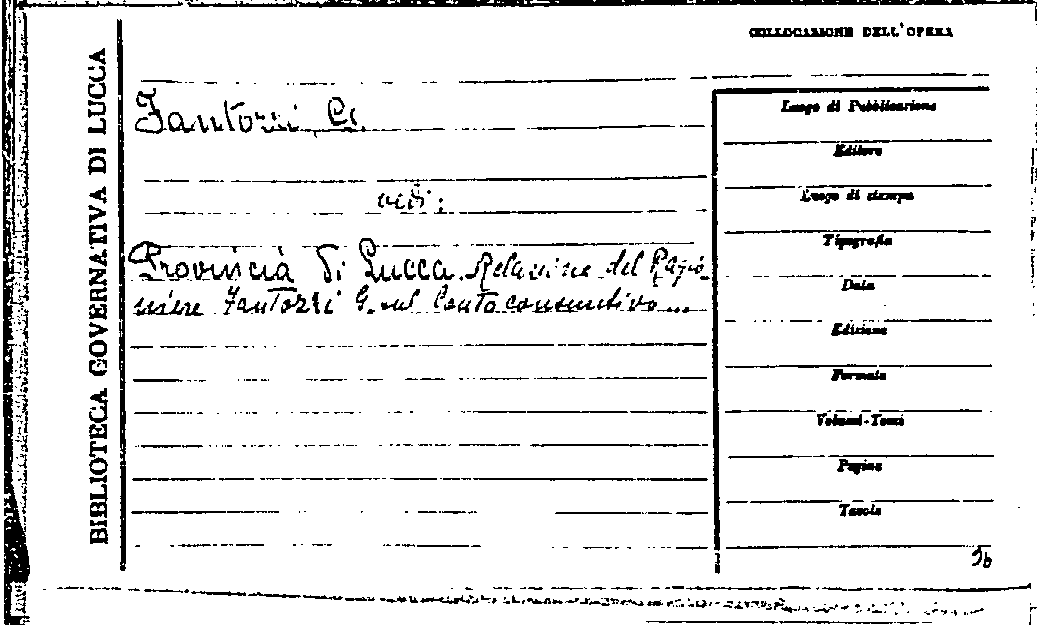 COLLOCAZIONE DELL'OPERA
BIBLIOTECA GOVERNATIVA DI LUCCA
Fantozzi, G.
vedi:
Provincia di Lucca. Relazione del Ragio-
niere Fantozzi G. sul Conto consuntivo...
Luogo di Pubblicazione
Editore
Luogo di stampa
Tipografia
Data
Edizione
Formato
Volumi-Tomi
Pagine
Tavole